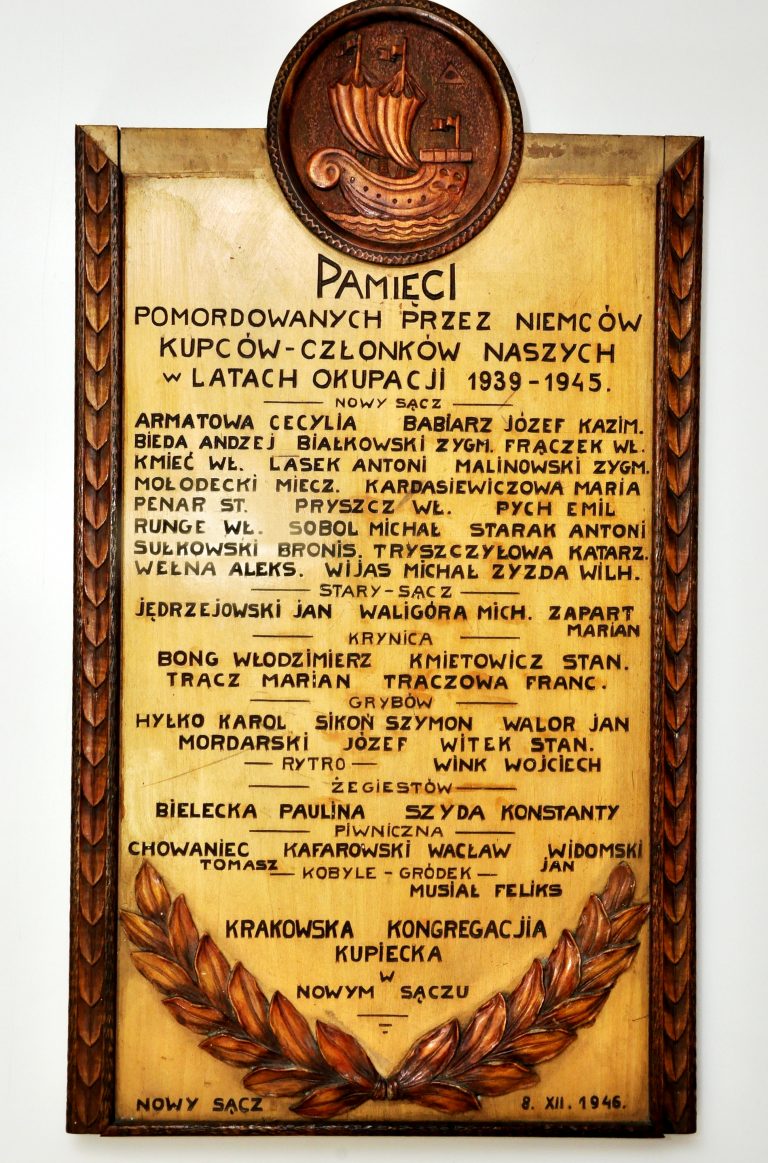 PAMIĘCI
POMORDOWANYCH PRZEZ NIEMCÓW
KUPCÓW-CZŁONKÓW NASZYCH
W LATACH OKUPACJI 1939-1945.
NOWY SĄCZ
ARMATOWA CECYLIA BABIARZ JÓZEF KAZIM.
BIEDA ANDZEJ BIAŁKOWSKI ZYGM. FRĄCZEK WŁ.
KMIEĆ WŁ. LASEK ANTONI MALINOWSKI ZYGM.
MOŁODECKI MIECZ. KARDASIEWICZOWA MARIA
PENAR ST. PRYSZCZ WŁ. PYCH EMIL
RUNGE WŁ. SOBOL MICHAŁ STARAK ANTONI
SUŁKOWSKI BRONIS. TRYSZCZYŁOWA KATARZ.
WEŁNA ALEKS. WIJAS MICHAŁ ZYZDA WILH.
STARY-SĄCZ
JĘDRZEJOWSKI JAN WALIGÓRA MICH. ZAPART
MARIAN
KRYNICA
BONG WŁODZIMIERZ KMIETOWICZ STAN.
TRĄCZ MARIAN TRACZOWA FRANC.
GRYBÓW
HYŁKO KAROL SIKOŃ SZYMON WALOR JAN
MORDARSKI JÓZEF WITEK STAN.
RYTRO WINK WOJCIECH
ŻEGIESTÓW
BIELECKA PAULINA SZYDA KONSTANTY
PIWNICZNA
CHOWANIEC KAFAROWSKI WACŁAW WIDOMSKI
TOMASZ JAN
KOBYLE-GRÓDEK
MUSIAŁ FELIKS
KRAKOWSKA KONGREGACJIA
KUPIECKA
W
NOWYM SĄCZU
NOWY SĄCZ 8. XII. 1946.